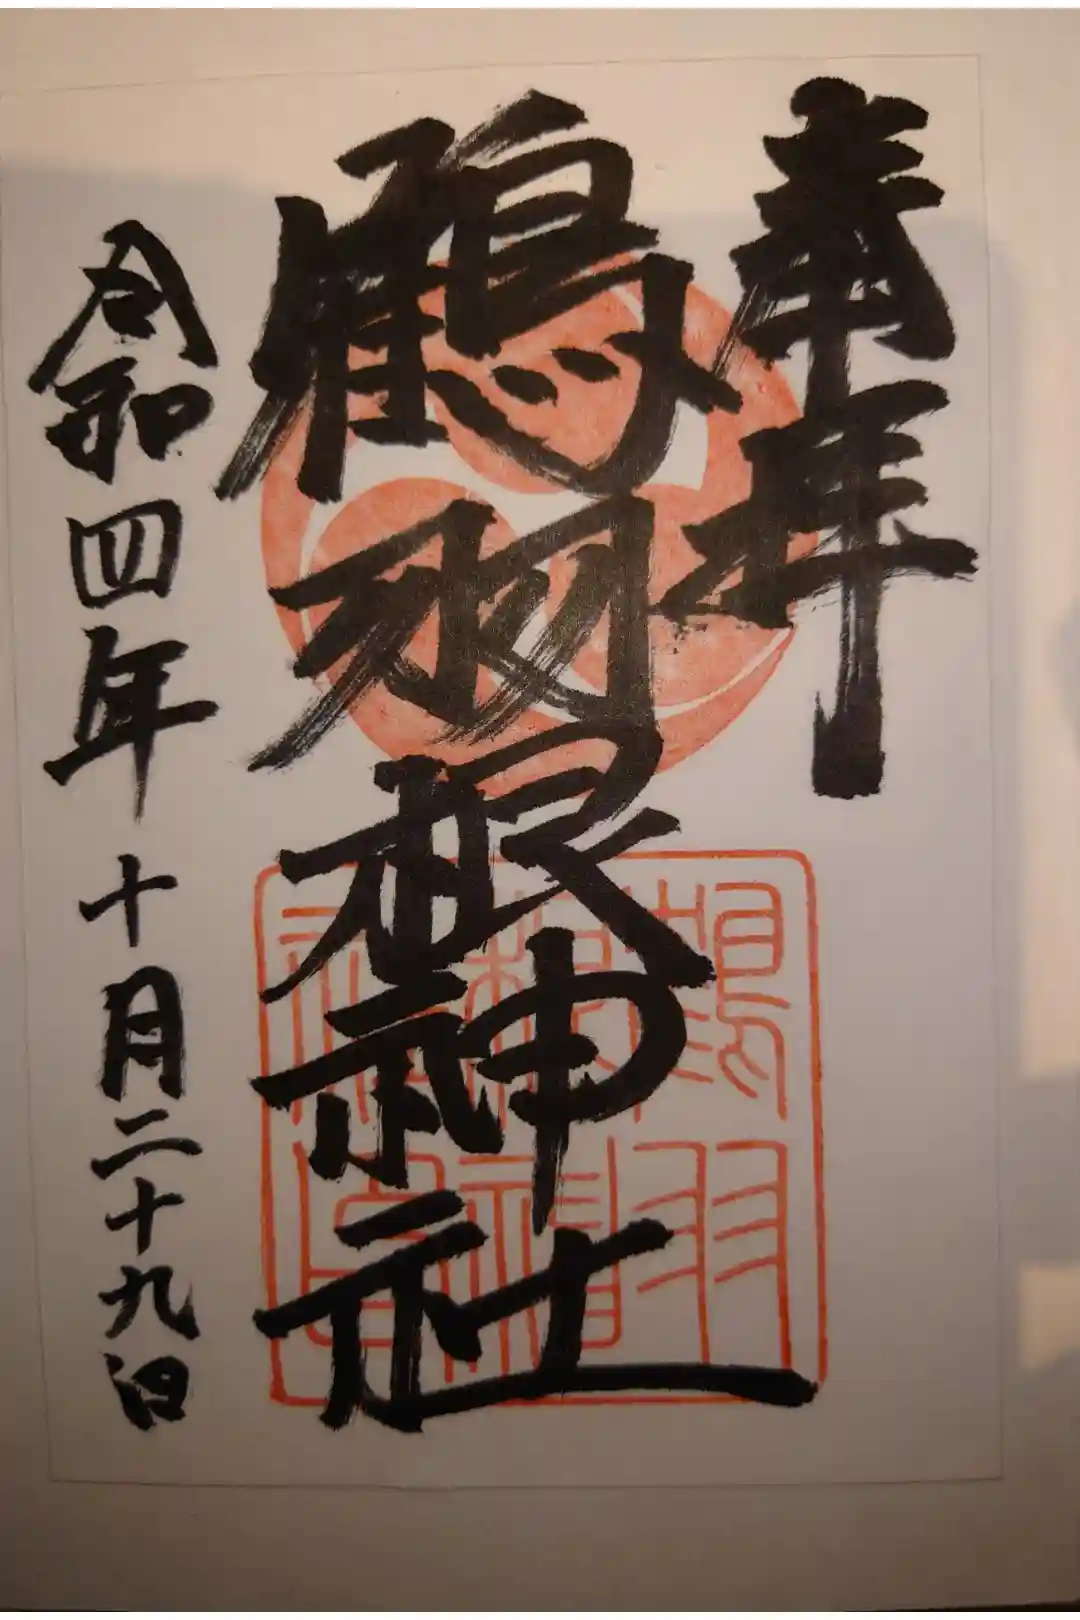 奉拝
鶴羽根神社
令和四年十月二十九日
鶴羽
根神
社印